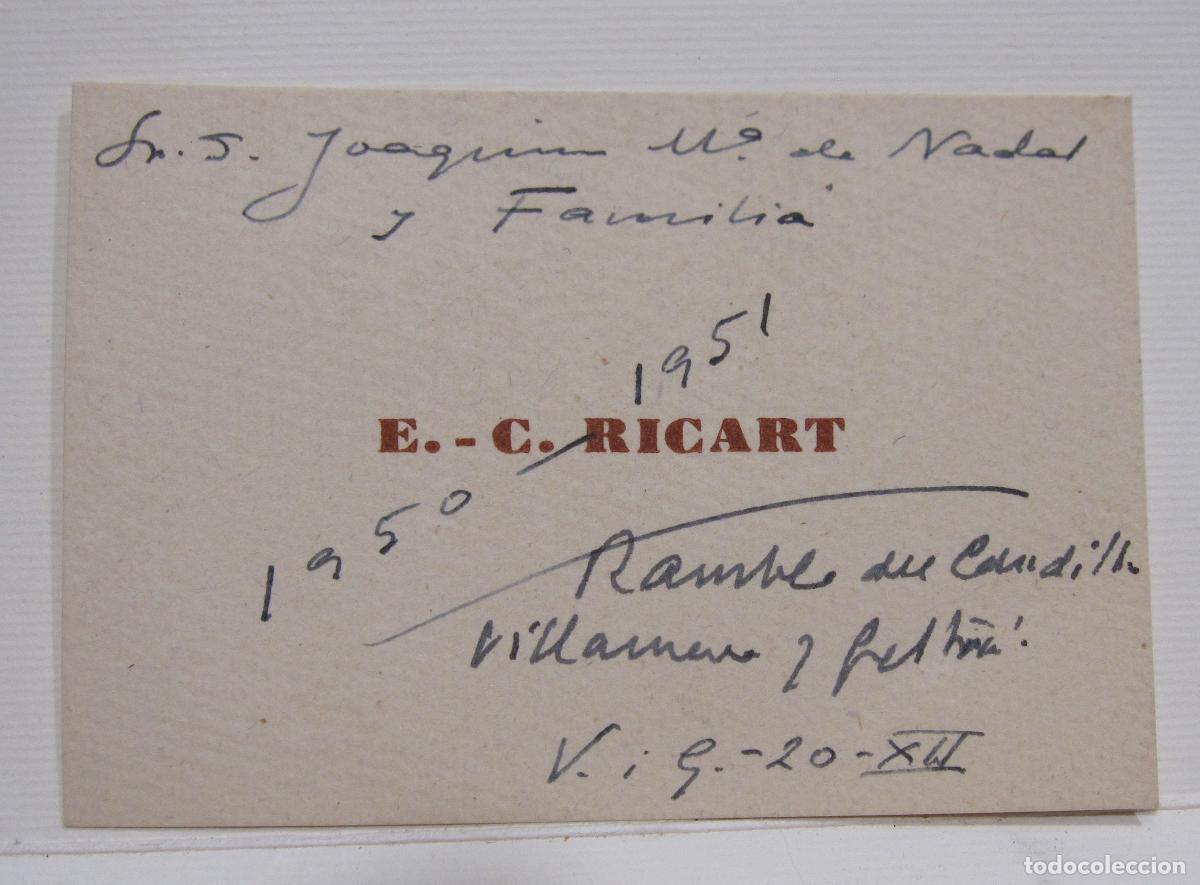 Sr. D. Joaquim Mª de Nadal
y Familia
1951
E.-C. RICART
1950
Rambla del Caudillo
Villanueva y Geltrú.
V. i G.-20-XII
todocoleccion